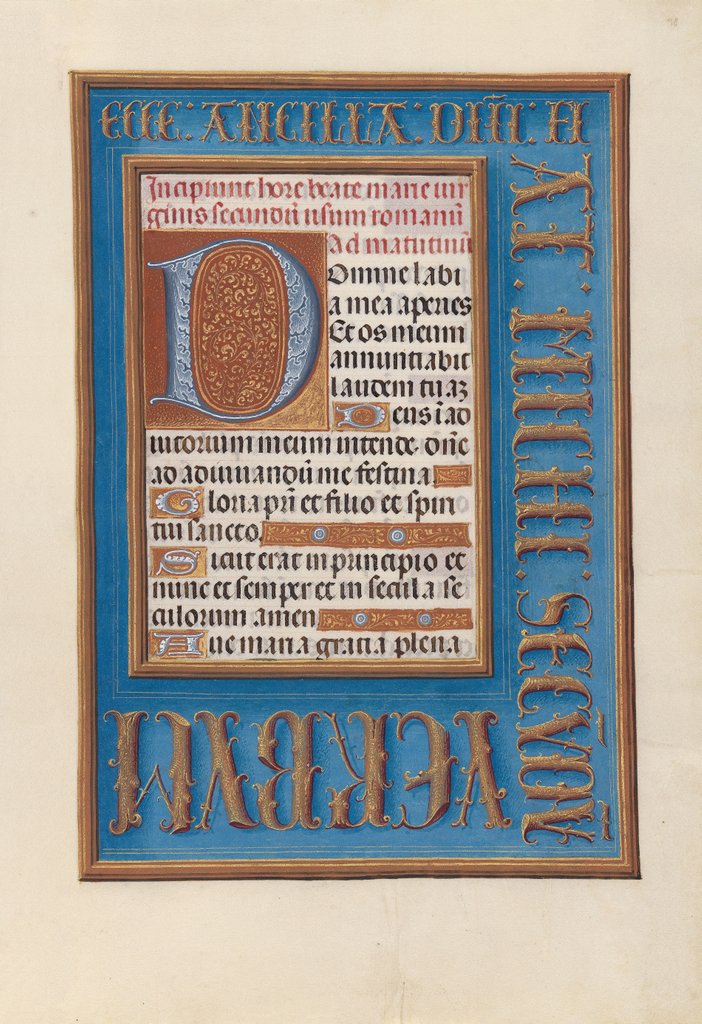 ECCE: ANCILLA: DN̄I: FI
AT. MICHI. SECV̄DV̄
VERBVM
Incipiunt hore beate marie uir
ginis secundū usum romanū
Ad matutinū
Domine labi
a mea aperies
Et os meum
annuntiabit
laudem tuaʒ
Deus ī ad
iutorium meum intende. dn̄e
ad adiuuandū me festina
Gloria pr̄i et filio et spiri
tui sancto.
Sicut erat in principio et
nunc et semper et in secula se
culorum amen
Aue maria gratia plena